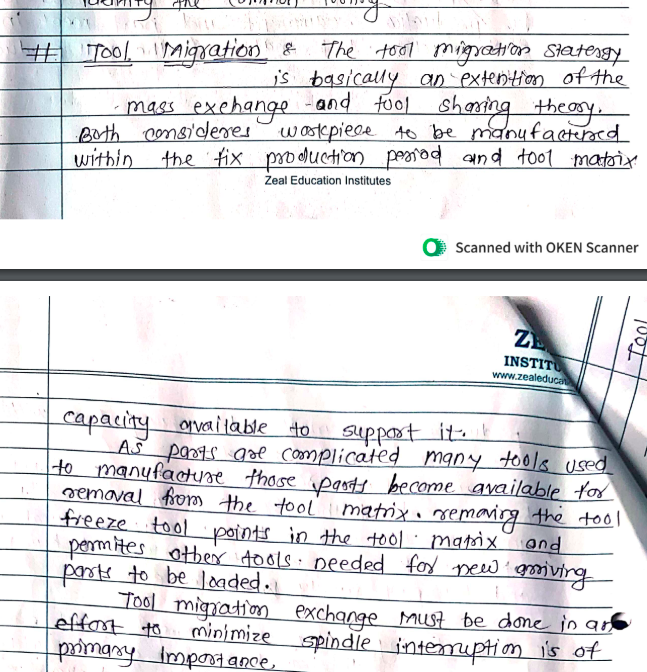 identify the common tooling
# Tool Migration & The tool migration statergy
is basically an extention of the
mass exchange and tool sharing theory.
Both consideres workpiece to be manufactured
within the fix production period and tool matrix
Zeal Education Institutes
Scanned with OKEN Scanner
ZE
INSTITU
www.zealeducat
Tool
capacity available to support it.
As parts are complicated many tools used
to manufacture those parts become available for
removal from the tool matrix. removing the tool
freeze tool points in the tool matrix and
permites other tools needed for new arriving
parts to be loaded.
Tool migration exchange must be done in an
effort to minimize spindle interruption is of
primary importance,